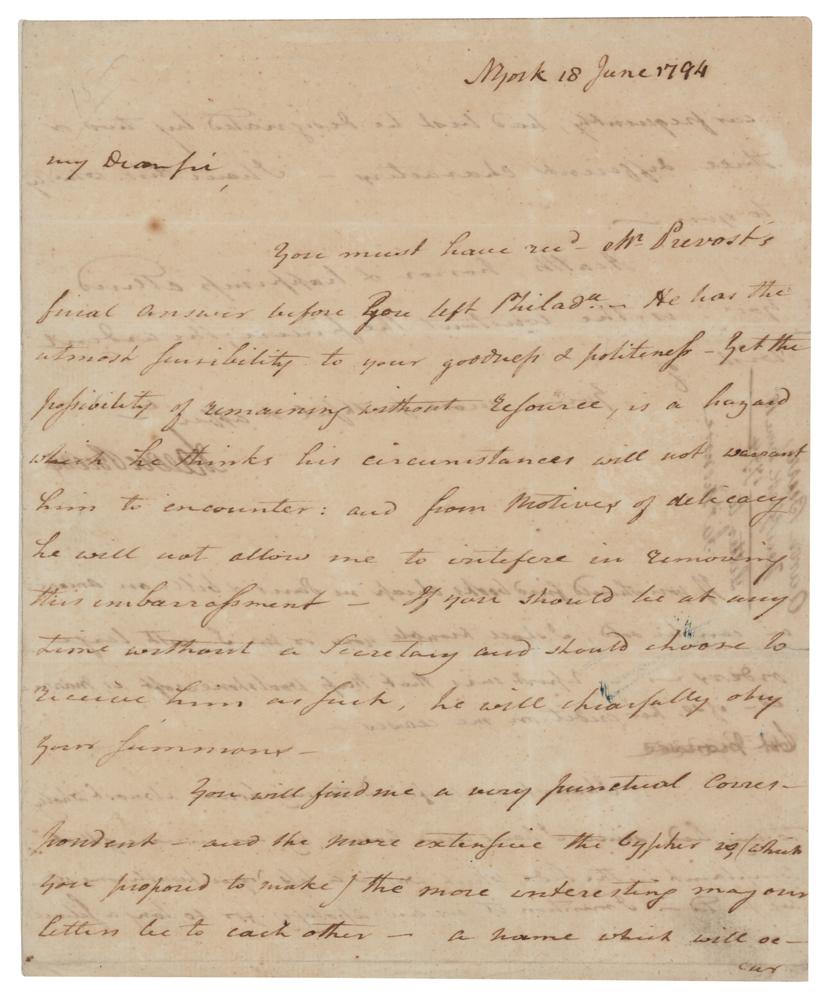 NYork 18 June 1794
my Dear sir,
You must have recd Mr. Prevost's
final answer before you left Philada. – He has the
utmost sensibility to your goodness & politeness – Yet the
possibility of remaining without resource, is a hazard
which he thinks his circumstances will not warrant
him to encounter: and from motives of delicacy
he will not allow me to intefere in removing
this embarrassment – If you should be at any
time without a Secretary and should choose to
receive him as such, he will chearfully obey
your summons –
You will find me a very punctual Corres–
pondent – and the more extensive the Cypher is, (which
you proposed to make) the more interesting may our
letters be to each other – a name which will oc–
cur